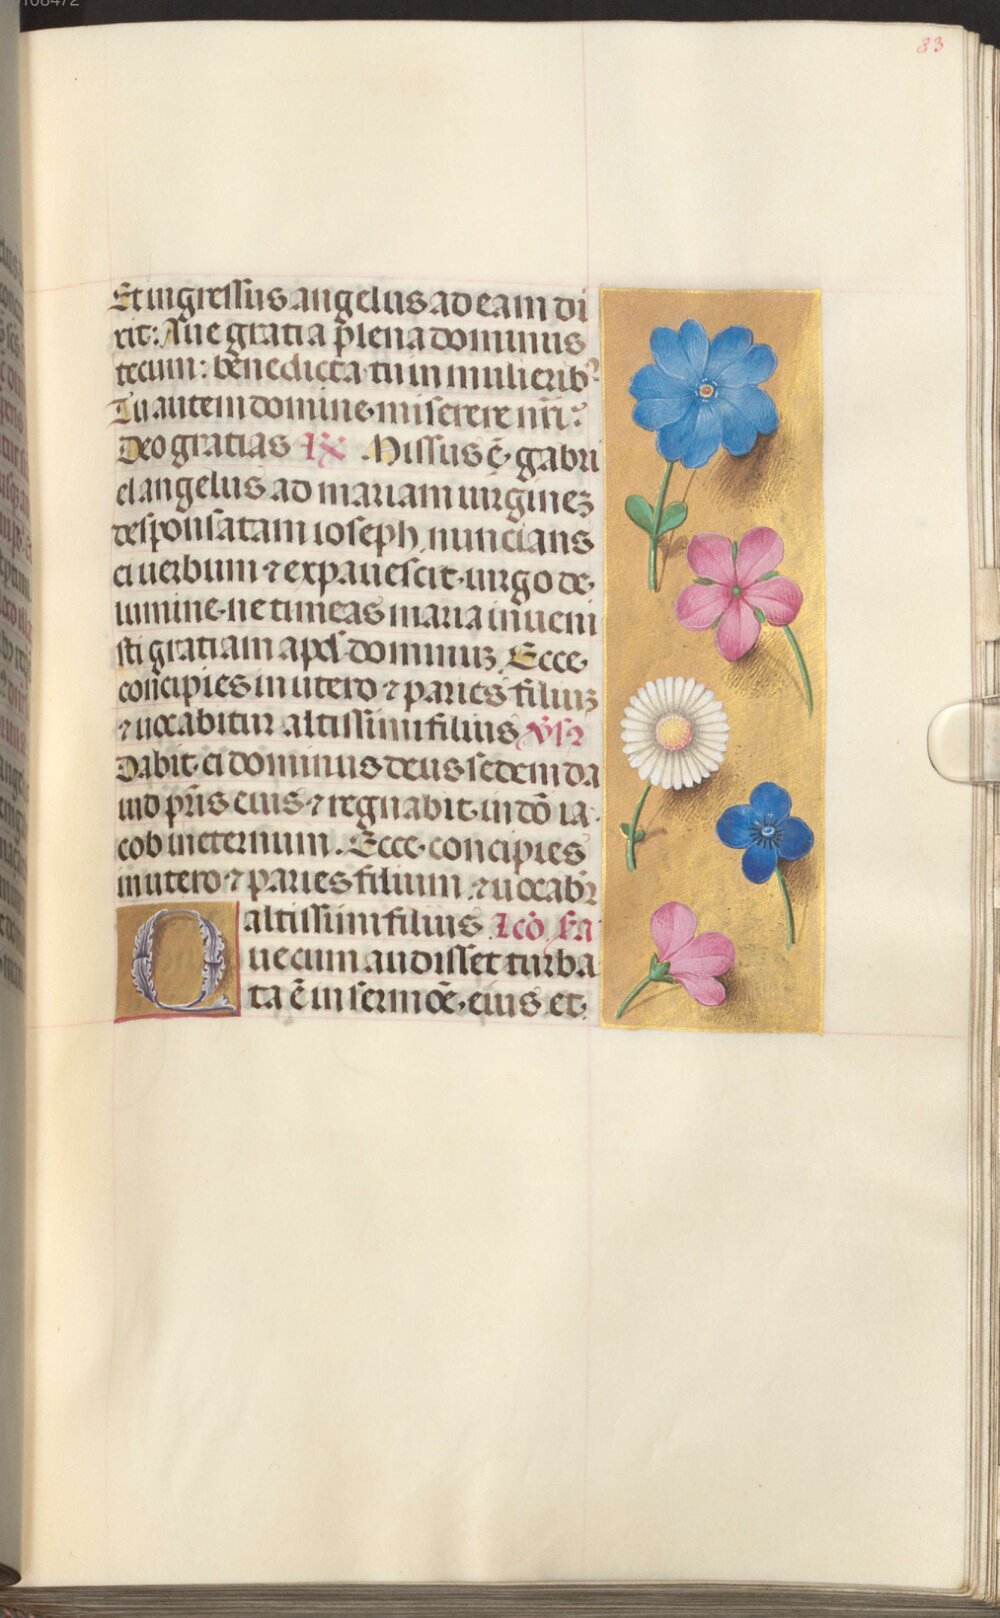 83
Et ingressus angelus ad eam di
xit: Aue gratia plena dominus
tecum: bñedicta tu in mulierib9
Tu autem domine miserere nr̃i.
Deo gratias IX Missus ẽ gabri
el angelus ad mariam uirginez
desponsatam ioseph nuncians
ei uerbum ⁊ expauescit uirgo de
lumine ne timeas maria inueni
sti gratiam apd̃ dominuz Ecce
concipies in utero ⁊ paries filiuz
⁊ uocabitur altissimi filius
Dabit ei dominus deus sedem da
uid pr̃is eius ⁊ regnabit in dõ ia
cob in eternum. Ecce concipies
in utero ⁊ paries filium ⁊ uocabr̃
altissimi filius Lcõ Ea
Q uecum audisset turba
ta ẽ in sermõe eius et